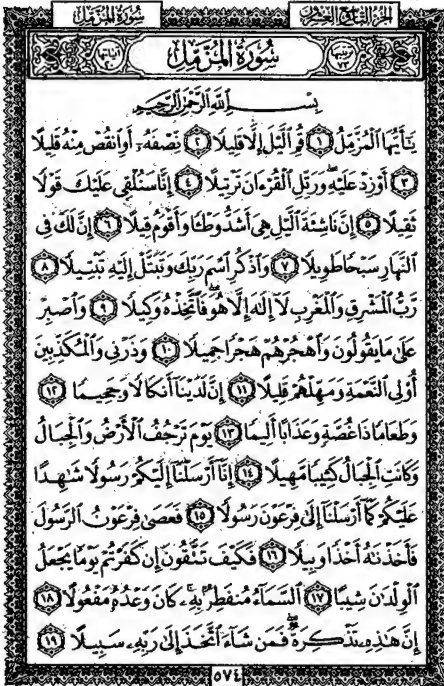 الجزء التاسع والعشرون سورة المزمل
سُورَةُ المُزَّمِّلِ
بِسْمِ اللَّهِ الرَّحْمَٰنِ الرَّحِيمِ
يَٰٓأَيُّهَا ٱلْمُزَّمِّلُ ١ قُمِ ٱلَّيْلَ إِلَّا قَلِيلًا ٢ نِّصْفَهُۥٓ أَوِ ٱنقُصْ مِنْهُ قَلِيلًا
٣ أَوْ زِدْ عَلَيْهِ وَرَتِّلِ ٱلْقُرْءَانَ تَرْتِيلًا ٤ إِنَّا سَنُلْقِى عَلَيْكَ قَوْلًا
ثَقِيلًا ٥ إِنَّ نَاشِئَةَ ٱلَّيْلِ هِىَ أَشَدُّ وَطْـًٔا وَأَقْوَمُ قِيلًا ٦ إِنَّ لَكَ فِى
ٱلنَّهَارِ سَبْحًا طَوِيلًا ٧ وَٱذْكُرِ ٱسْمَ رَبِّكَ وَتَبَتَّلْ إِلَيْهِ تَبْتِيلًا ٨
رَّبُّ ٱلْمَشْرِقِ وَٱلْمَغْرِبِ لَآ إِلَٰهَ إِلَّا هُوَ فَٱتَّخِذْهُ وَكِيلًا ٩ وَٱصْبِرْ
عَلَىٰ مَا يَقُولُونَ وَٱهْجُرْهُمْ هَجْرًا جَمِيلًا ١٠ وَذَرْنِى وَٱلْمُكَذِّبِينَ
أُو۟لِى ٱلنَّعْمَةِ وَمَهِّلْهُمْ قَلِيلًا ١١ إِنَّ لَدَيْنَآ أَنكَالًا وَجَحِيمًا ١٢
وَطَعَامًا ذَا غُصَّةٍ وَعَذَابًا أَلِيمًا ١٣ يَوْمَ تَرْجُفُ ٱلْأَرْضُ وَٱلْجِبَالُ
وَكَانَتِ ٱلْجِبَالُ كَثِيبًا مَّهِيلًا ١٤ إِنَّآ أَرْسَلْنَآ إِلَيْكُمْ رَسُولًا شَٰهِدًا
عَلَيْكُمْ كَمَآ أَرْسَلْنَآ إِلَىٰ فِرْعَوْنَ رَسُولًا ١٥ فَعَصَىٰ فِرْعَوْنُ ٱلرَّسُولَ
فَأَخَذْنَٰهُ أَخْذًا وَبِيلًا ١٦ فَكَيْفَ تَتَّقُونَ إِن كَفَرْتُمْ يَوْمًا يَجْعَلُ
ٱلْوِلْدَٰنَ شِيبًا ١٧ ٱلسَّمَآءُ مُنفَطِرٌۢ بِهِۦ كَانَ وَعْدُهُۥ مَفْعُولًا ١٨
إِنَّ هَٰذِهِۦ تَذْكِرَةٌ فَمَن شَآءَ ٱتَّخَذَ إِلَىٰ رَبِّهِۦ سَبِيلًا ١٩
٥٧٤